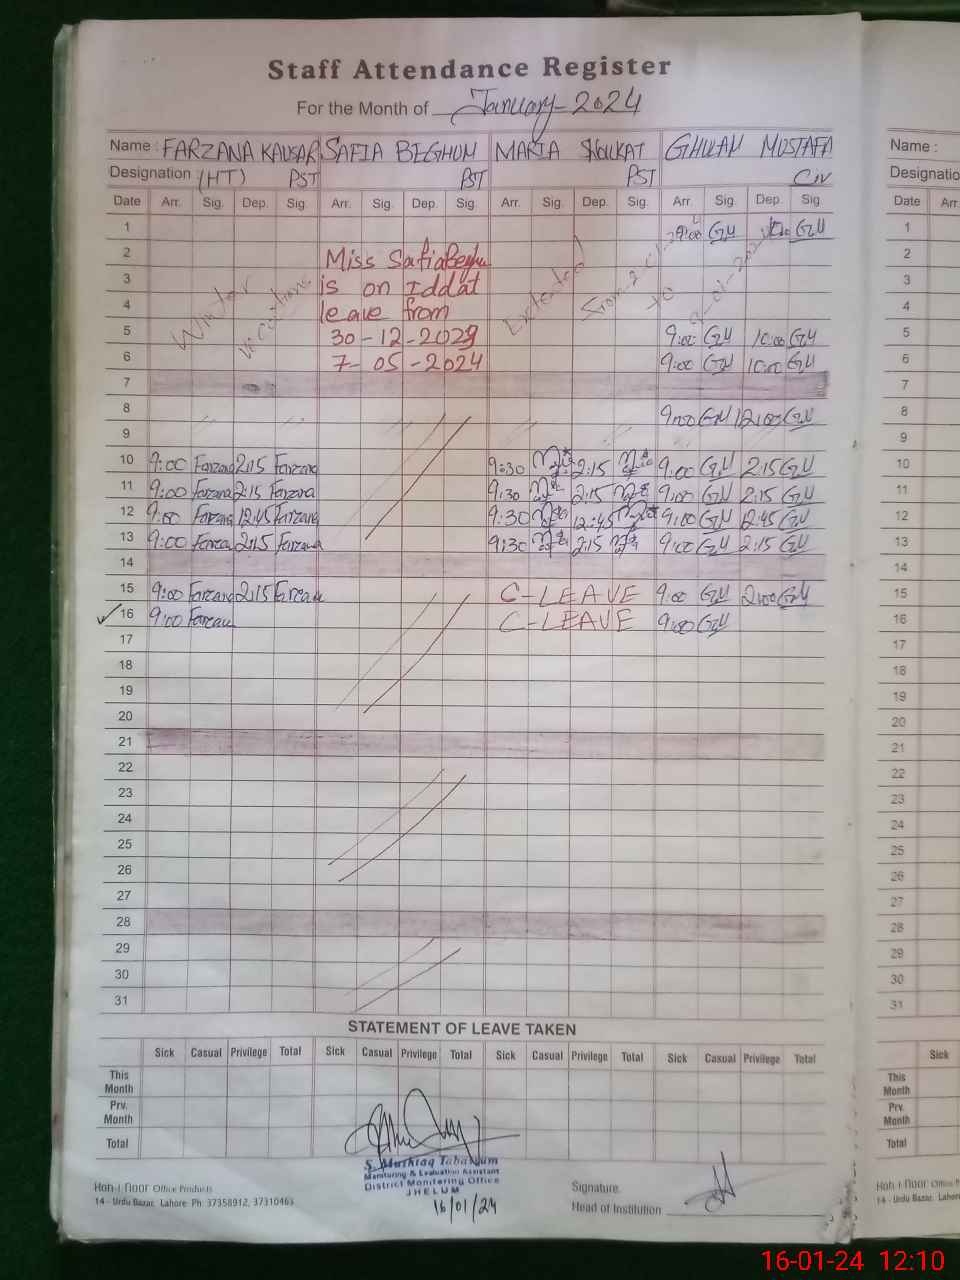 Staff Attendance Register
For the Month of January-2024
Name : FARZANA KAUSAR SAFIA BEGHUM MARIA SHOUKAT GHULAM MUSTAFA Name :
Designation (HT) PST PST PST CIV Designatio
Date Arr. Sig. Dep. Sig. Arr. Sig. Dep. Sig. Arr. Sig. Dep. Sig. Arr. Sig. Dep. Sig. Date Arr.
1 9:00 GM GM 1
2 Miss Safia Beghu 2
3 Winter vacations is on Iddat Extended from-2-01- to 3
4 leave from 4
5 30-12-2023 9:00 GM 10:00 GM 5
6 7-05-2024 9:00 GM 10:00 GM 6
7 7
8 9:00 GM 12:00 GM 8
9 9
10 9:00 Farzana 2:15 Farzana 9:30 2:15 9:00 GM 2:15 GM 10
11 9:00 Farzana 2:15 Farzana 9:30 2:15 9:00 GM 2:15 GM 11
12 9:00 Farzana 12:45 Farzana 9:30 12:45 9:00 GM 12:45 GM 12
13 9:00 Farzana 2:15 Farzana 9:30 2:15 9:00 GM 2:15 GM 13
14 14
15 9:00 Farzana 2:15 Farzana C-LEAVE 9:00 GM 2:00 GM 15
16 9:00 Farzana C-LEAVE 9:00 GM 16
17 17
18 18
19 19
20 20
21 21
22 22
23 23
24 24
25 25
26 26
27 27
28 28
29 29
30 30
31 31
STATEMENT OF LEAVE TAKEN
Sick Casual Privilege Total Sick Casual Privilege Total Sick Casual Privilege Total Sick Casual Privilege Total Sick
This Month This Month
Prv. Month Prv. Month
Total Total
S. Mushtaq Tabassum
Monitoring & Evaluation Assistant
District Monitoring Office
JHELUM
16/01/24
Koh-i-Noor Office Products
14 - Urdu Bazar, Lahore Ph: 37358912, 37310463
Signature
Head of Institution
Koh-i-Noor Office P
14 - Urdu Bazar, Lahore
16-01-24 12:10